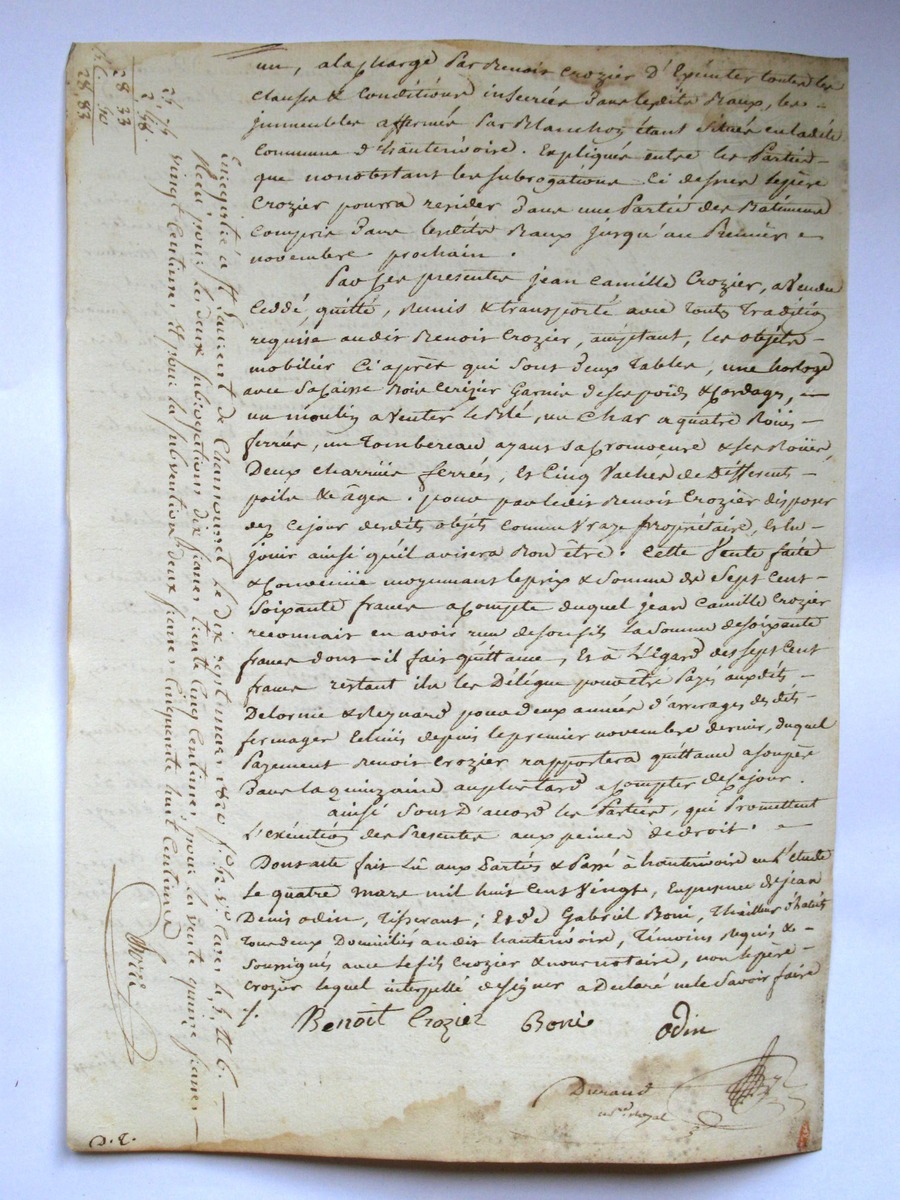 un, a la charge par Benoit Crozier d'Exécuter toutes les
clauses & Conditions inscrites dans lesdits Baux, les
jmmeubles affermés par Blanchon étant situés en ladite
Commune d'hauterivoire. Expliqués entre les Parties
que nonobstant les subrogations Ci dessus le père
Crozier pourra resider dans une Partie des Batimens
Compris dans lesdits Baux jusqu'au Premier
novembre prochain.
Par ses presentes jean Camille Crozier, a Vendu
Ceddé, quitté, remis & transporté avec toute Tradition
requise audit Benoit Crozier, acceptant, les objets
mobilier Ci après qui sont deux Tables, une horloge
avec sa Caisse Bois Cerizier Garnie de ses poids & Cordages,
un moulin a Venter le Blé, un Char a quatre Roües
ferrées, un Tombereau ayant sa & ses Roües,
Deux charrues ferrées, Et Cinq Vaches de Différents
poils & âges. pour par ledit Benoit Crozier disposer
dez Ce jour desdits objets Comme Vraye Propriétaire, Et en
jouir ainsi qu'il avisera Bon être. Cette Vente faite
& Convenüe moyennant le prix & Somme de Sept Cent
Soixante francs a Compte duquel jean Camille Crozier
reconnait en avoir reçu de son fils la Somme de soixante
francs dont il fait quittance, Et à L'égard des sept Cent
francs restant il les Délègue pour être Payés auxdits
Delorme & Reynard pour deux années d'arrerages desdits
fermages Echüs depuis le premier novembre dernier, duquel
Payement Benoit Crozier rapportera quittance a son père
Dans la quinzaine au plus tard a Compter de Ce jour.
ainsi sont D'accord les Parties, qui Promettent
L'exécution des Presentes aux peines de droit.
Dont acte fait Lû aux Parties & Passé à hauterivoire en L'étude
Le quatre mars mil huit Cent Vingt, En presence de jean
Denis odin, Tisserant; Et de Gabriel Boni, Thailleur d'habits
Tous deux Domiciliés audit hauterivoire, Témoins Requis &
Soussignés avec le fils Crozier & nous notaire, non le père
Crozier lequel interpellé de signer a Declaré ne le Savoir faire
Benoit Crozier Boni odin
Durand
n.re royal
Enregistré à St Laurent de Chamousset le dix sept mars 1820
Reçu pour les deux subrogations dix francs trente Cinq Centimes, pour la vente quinze francs
vingt Centimes Et pour la subvention deux francs Cinquante huit Centimes
28 33
28.83